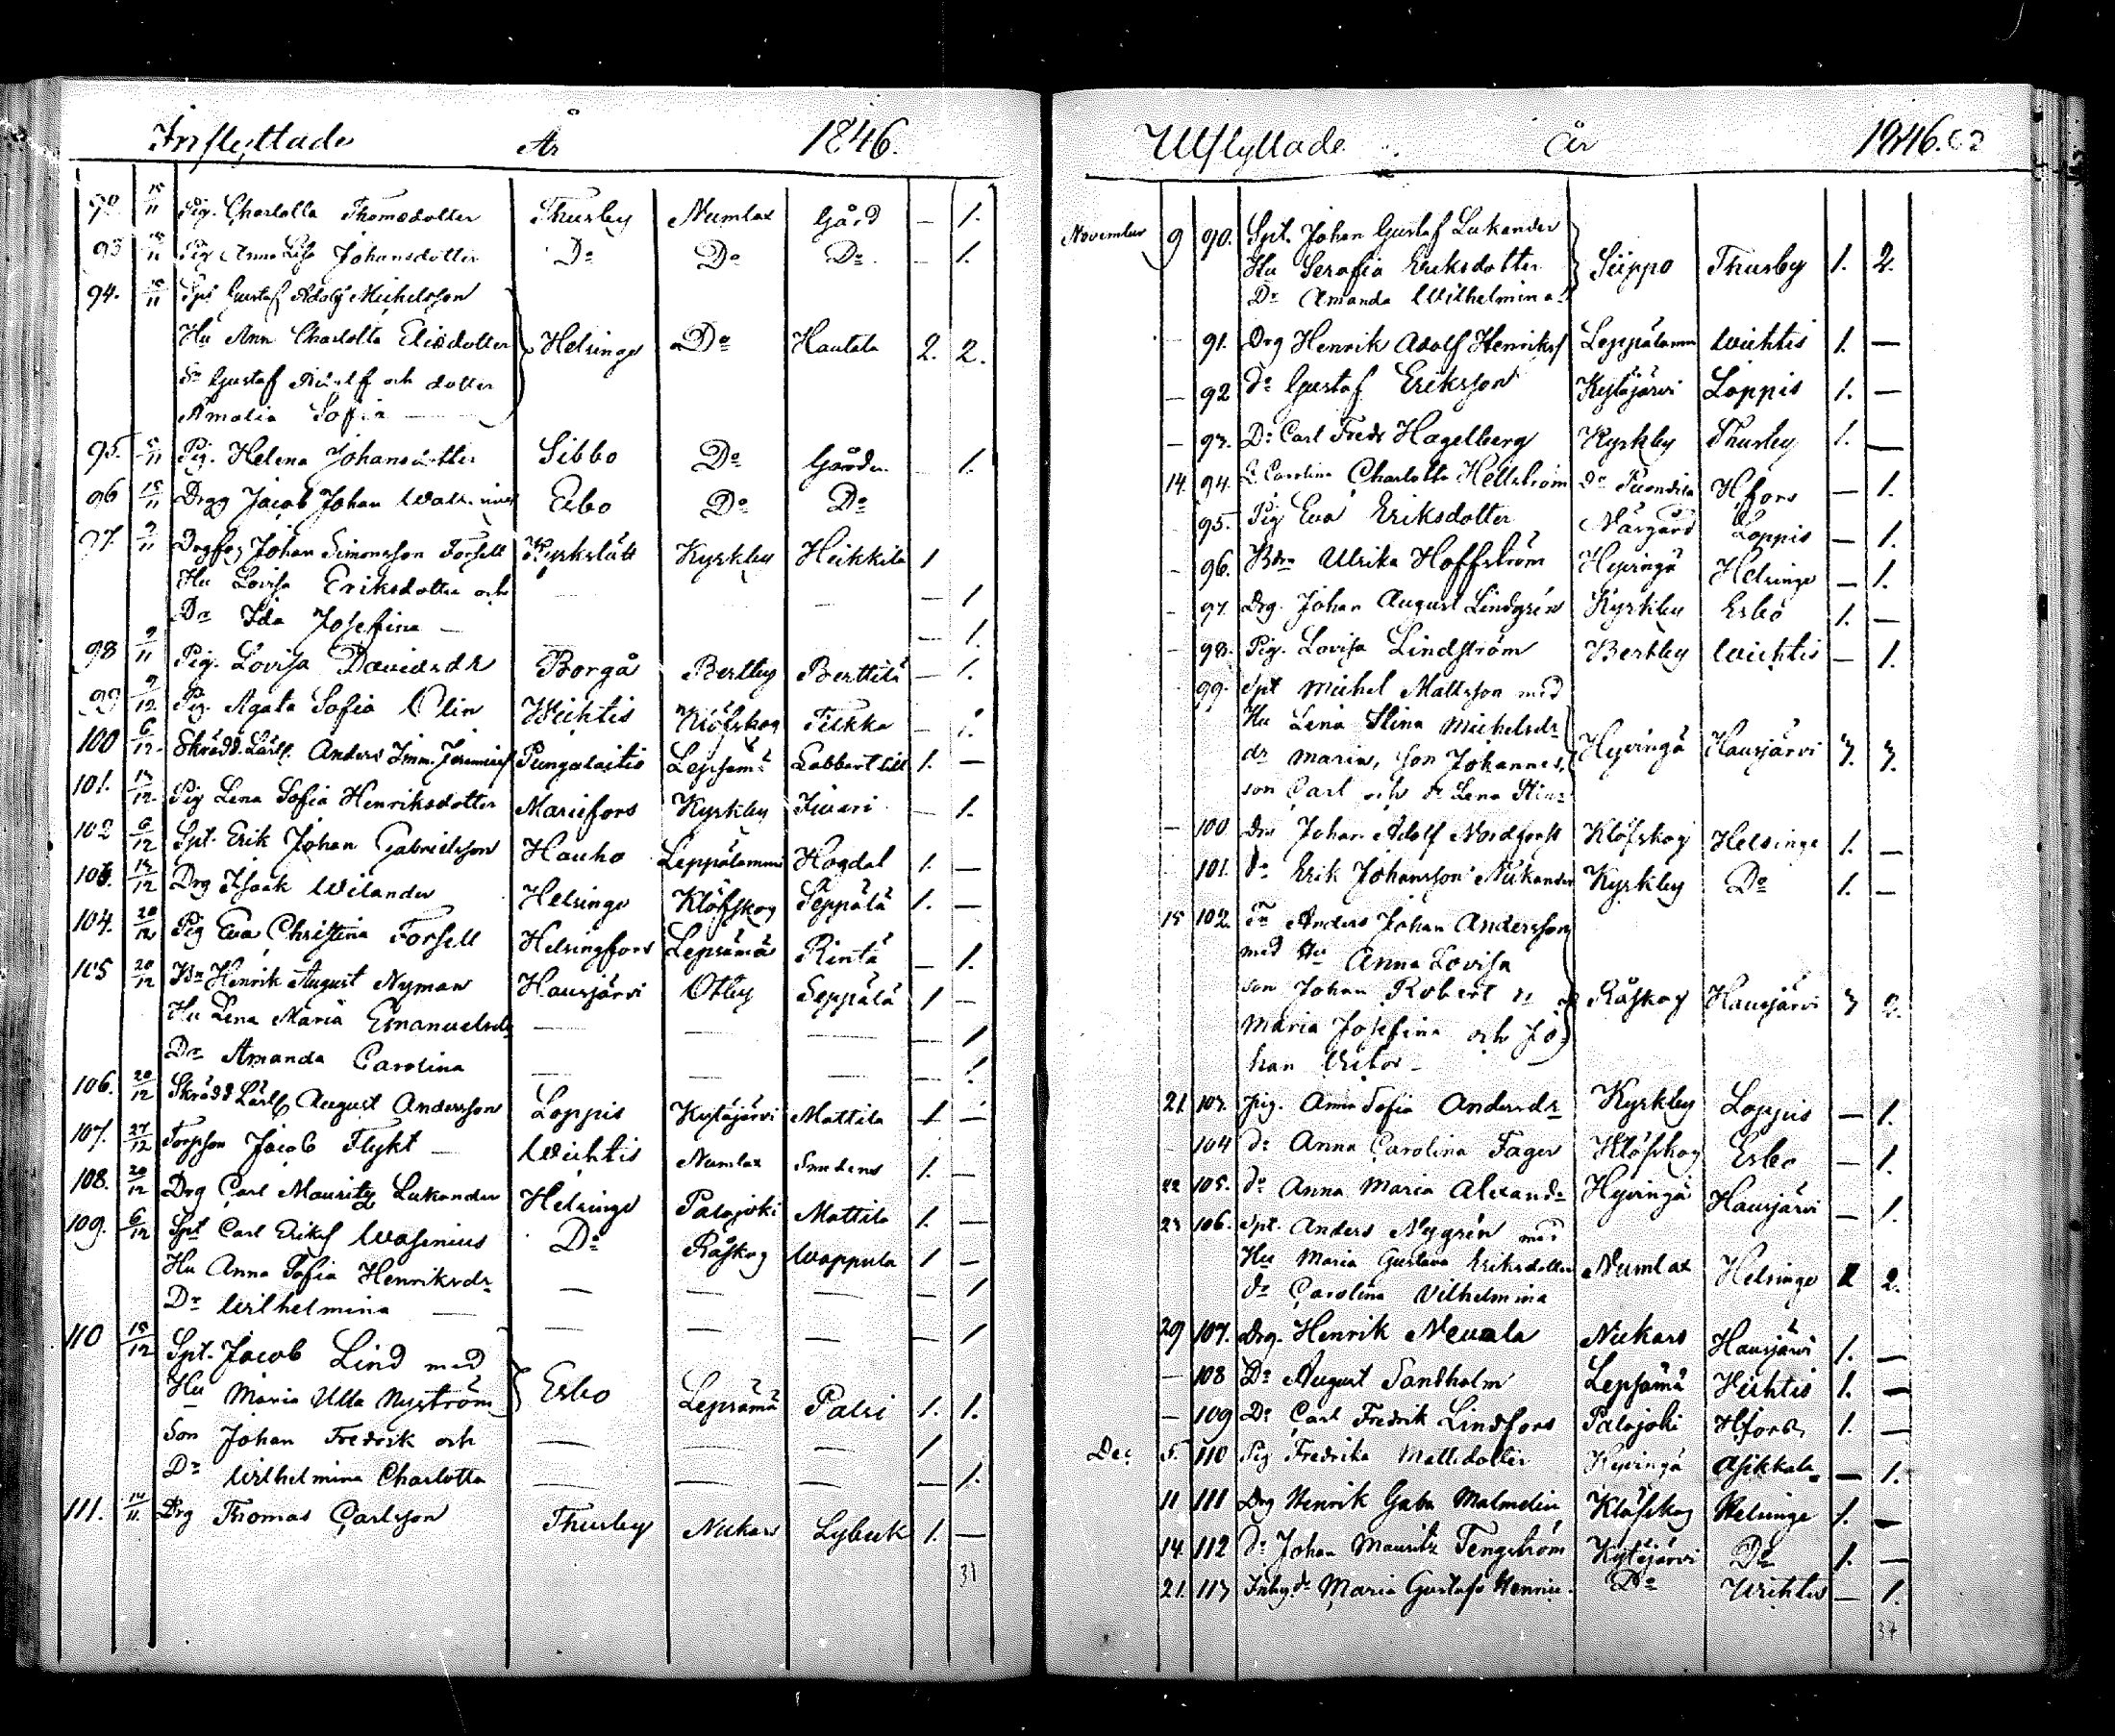 Inflyttade År 1846.
92 15/11 Pig. Charlotta Thomsdotter Thusby Numlax Gård — 1.
93 15/11 Pig Anna Lisa Johansdotter Do Do Do — 1.
94. 15/11 Spt Gustaf Adolf Michelsson
Hu Ann Charlotta Elisdotter Helsinge Do Hautala 2. 2.
Sn Gustaf Adolf och dotter
Amalia Sofia —
95. 15/11 Pig. Helena Johansdotter Sibbo Do Gården 1.
96 15/11 Drgg Jacob Johan Esbo Do Do
97. 9/11 Johan Simonsson Forsell Kyrkslätt Kyrkby Heikkilä 1
Hu Lovisa Eriksdotter och — — — — 1
Dr Ida Josefina — — 1.
98 9/11 Pig. Lovisa Davidsdr Borgå Bertby Berttilä — 1.
99 9/12 Pig. Agata Sofia Olin Wichtis Klöfskog Tilkka — 1.
100 6/12 Skrädd Lärl. Anders Imm. Pungalaitis Lepsämä 1. —
101. 13/12 Pig Lena Sofia Henriksdotter Mariefors Kyrkby — 1.
102 6/12 Spt. Erik Johan Gabrielsson Hauho Leppälammi Hogdal 1. —
103. 13/12 Drg Isaak Wilander Helsinge Klöfskog Seppälä 1. —
104. 20/12 Pig Eva Christina Forsell Helsingfors Lepsämä Rintä — 1.
105 20/12 Bn Henrik August Nyman Hausjärvi Otby Seppälä 1 —
Hu Lena Maria Emanuelsdr — — — — 1
Dr Amanda Carolina — — — — 1
106. 20/12 Skrädd Lärl August Andersson Loppis Kytäjärvi Mattila 1 —
107. 27/12 Torpson Jacob Flykt — Wichtis Numlax 1. —
108. 20/12 Drg Carl Mauritz Lukander Helsinge Palojoki Mattila 1. —
109. 6/12 Spt Carl Eriks Wasenius Do Råskog Wappula 1 —
Hu Anna Sofia Henriksdr — — — — 1
Dr Wilhelmina — — — — — 1
110 15/12 Spt. Jacob Lind med
Hu Maria Ulla Nyström Esbo Lepsämä Palsi 1. 1.
Son Johan Fredrik och — — — 1
Dr Wilhelmina Charlotta — — — — 1.
111. 14/11 Drg Thomas Carlsson Thusby Nukars Lybeck 1. —
31
Utflyttade År 1846.
November 9 90. Spt. Johan Gustaf Lukander
Hu Serafia Eriksdotter Siippo Thusby 1. 2.
Dr Amanda Wilhelmina
— 91. Drg Henrik Adolf Henrikss Leppälammi Wichtis 1. —
— 92 Do Gustaf Eriksson Kytäjärvi Loppis 1. —
— 93. Do Carl Fredr Hagelberg Kyrkby Thusby 1. —
14. 94. Carolina Charlotta Hellström Hfors — 1.
95. Pig Eva Eriksdotter Loppis — 1.
— 96. Ulrika Hoffström Hyvingä Helsinge — 1.
— 97. Drg. Johan August Lindgrén Kyrkby Esbo 1. —
— 98. Pig. Lovisa Lindström Bertby Wichtis — 1.
99. Spt Michel Mattsson med
Hu Lena Stina Michelsdr
dr Maria, son Johannes, Hyvingä Hausjärvi 3. 3.
son Carl och dr Lena Stina
— 100 Johan Adolf Nordqvist Klöfskog Helsinge 1. —
101. Do Erik Johansson Nikander Kyrkby Do 1. —
15 102. Anders Johan Andersson
med Hu Anna Lovisa
son Johan Robert dr Råskog Hausjärvi 3 2.
Maria Josefina och Jo-
han Victor —
21 103. Pig. Anna Sofia Andersdr Kyrkby Loppis — 1.
104 do Anna Carolina Fager Klöfskog Esbo — 1.
22 105. do Anna Maria Alexandr Hyvingä Hausjärvi — 1.
23 106. Spt. Anders Nygrén med
Hu Maria Gustava Eriksdotter Numlax Helsinge 1 2.
dr Carolina Vilhelmina
29 107. Drg. Henrik Nevala Nukars Hausjärvi 1. —
— 108 Do August Sandholm Lepsämä Wichtis 1. —
— 109 Do Carl Fredrik Lindfors Palojoki Hfors 1. —
Dec 5. 110 Pig Fredrika Mattsdotter Hyvingä Asikkala — 1.
11 111 Drg Henrik Gabr Malmelin Klöfskog Helsinge 1. —
14 112 do Johan Mauritz Tengström Kytäjärvi Do 1. —
21. 113 Maria Gustafs Do Wichtis — 1.
37